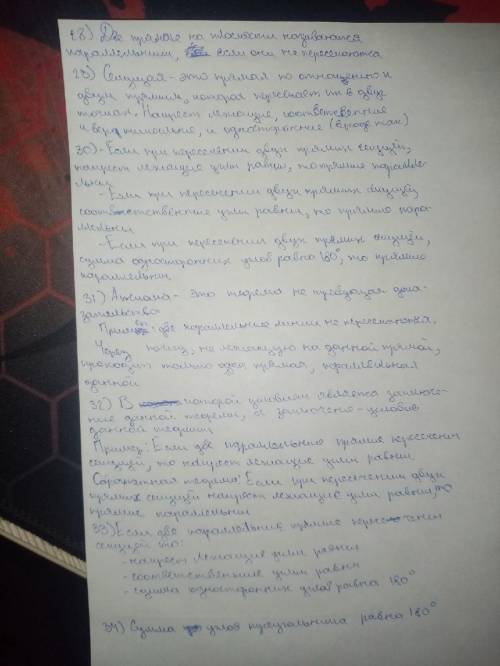 28) Две прямые на плоскости называются
параллельными, если они не пересекаются
29) Секущая - это прямая по отношению к
двум прямым, которая пересекает их в двух
точках. Накрест лежащие, соответственные
и вертикальные, и односторонние (вроде так)
30) - Если при пересечении двух прямых секущей,
накрест лежащие углы равны, то прямые паралле-
льны.
- Если при пересечении двух прямых секущей,
соответственные углы равны, то прямые пара-
ллельны
- Если при пересечении двух прямых секущей,
сумма односторонних углов равна 180°, то прямые
параллельны.
31) Аксиома - это теорема не требующая дока-
зательства
Пример: две параллельные линии не пересекаются.
Через точку, не лежащую на данной прямой,
проходит только одна прямая, параллельная
данной
32) В которой условием является заключе-
ние данной теоремы, а заключение - условие
данной теоремы
Пример: Если две параллельные прямые пересечены
секущей, то накрест лежащие углы равны.
Обратная теорема: Если при пересечении двух
прямых секущей накрест лежащие углы равны, то
прямые параллельны
33) Если две параллельные прямые пересечены
секущей то:
- накрест лежащие углы равны
- соответственные углы равны
- сумма односторонних углов равна 180°
34) Сумма углов треугольника равна 180°